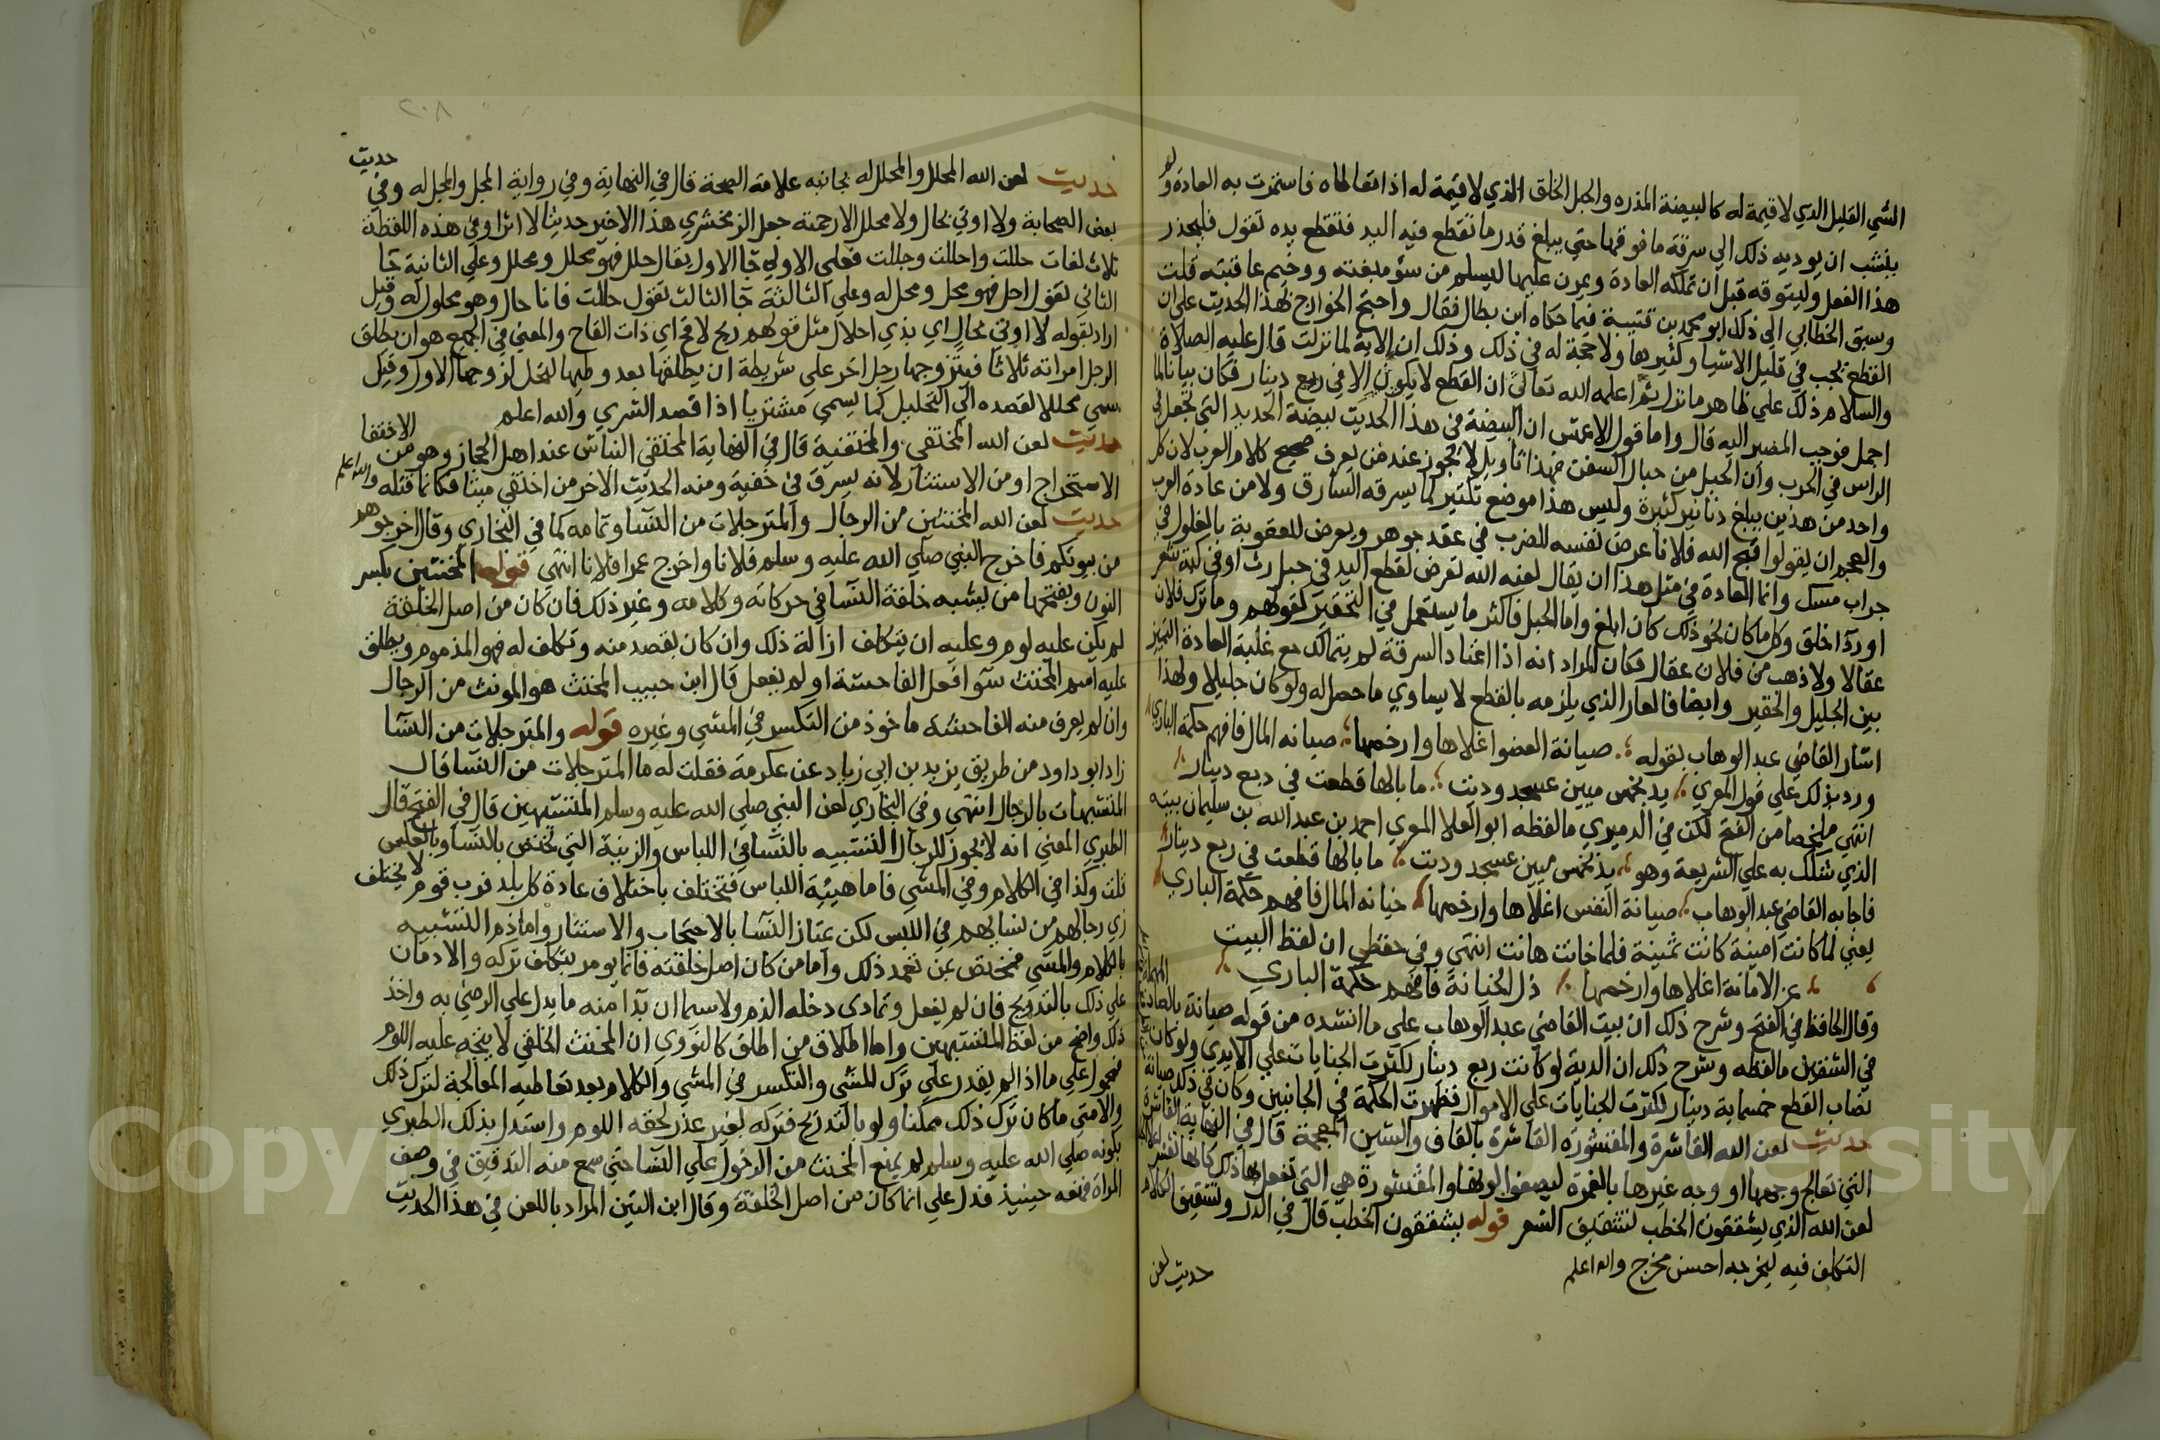 الشي القليل الذي لا قيمة له كالبيضة المذره والحبل الخلق الذي لا قيمة له اذا تعاطاه فاستمرت به العادة
ينشب ان يوديه ذلك الي سرقة ما فوقها حتي يبلغ قدر ما تقطع فيه اليد فتقطع يده تقول فليحذر
هذا الفعل وليتوقه قبل ان تملكه العادة ويمرن عليها ليسلم من سؤ مغبته ووخيم عاقبته قلت
وسبق الخطابي الي ذلك ابو محمد بن قتيبة فيما حكاه ابن بطال فقال واحتج الخوارج بهذا الحديث علي ان
القطع يجب في قليل الاشيا وكثيرها ولا حجة له في ذلك وذلك ان الاية لما نزلت قال عليه الصلاة
والسلام ذلك علي ظاهر ما نزل ثم اعلمه الله تعالي ان القطع لا يكون الا في ربع دينار فكان بيانا لما
اجمل فوجب المصير اليه قال واما قول الاعمش ان البيضة في هذا الحديث بيضة الحديد التي تجعل في
الراس في الحرب وان الحبل من حبال السفن فهذا تاويل لا يجوز عند من يعرف صحيح كلام العرب لان كل
واحد من هذين يبلغ دنانير كثيرة وليس هذا موضع تكثير لما يسرقه السارق ولا من عادة العرب
والعجم ان يقولوا قبح الله فلانا عرض نفسه للضرب في عقد جوهر وتعرض للعقوبة بالغلول في
جراب مسك وانما العادة في مثل هذا ان يقال لعنه الله تعرض لقطع اليد في حبل رث او في كبة شعر
او ردا خلق وكل ما كان نحو ذلك كان ابلغ واما الحبل فاكثر ما يستعمل في التحقير لقولهم وما ترك فلان
عقالا ولا ذهب من فلان عقال فكان المراد انه اذا اعتاد السرقة لم يتمالك مع غلبة العادة التمييز
بين الجليل والحقير وايضا فالعار الذي يلزمه بالقطع لا يساوي ما حصل له ولو كان جليلا ولهذا
اشار القاضي عبد الوهاب بقوله صيانة العضو اغلاها وارخصها صيانه المال فافهم حكمة الباري
ورد بذلك علي قول المعري يد بخمس ميين عسجد وديت ما بالها قطعت في ربع دينار
انتهي ملخصا من الفتح لكن في الدميري ما لفظه ابو العلا المعري احمد بن عبد الله بن سليمان بيته
الذي شكك به علي الشريعة وهو يد بخمس ميين عسجد وديت ما بالها قطعت في ربع دينار
فاجابه القاضي عبد الوهاب صيانة النفس اغلاها وارخصها خيانه المال فافهم حكمة الباري
يعني لما كانت امينة كانت ثمينة فلما خانت هانت انتهي وفي حفظي ان لفظ البيت
عز الامانة اغلاها وارخصها ذل الخيانة فافهم حكمة الباري
وقال الحافظ في الفتح وشرح ذلك ان بيت القاضي عبد الوهاب علي ما انشده من قوله صيانة
في الشقين ما لفظه وشرح ذلك ان الدية لو كانت ربع دينار لكثرت الجنايات علي الايدي ولو كان
نصاب القطع خمسماية دينار لكثرت الجنايات علي الاموال فظهرت الحكمة في الجانبين وكان في ذلك صيانة
حديث لعن الله القاشرة والمقشورة القاشرة بالقاف والشين المعجمة قال في النهاية القاشرة
التي تعالج وجهها او وجه غيرها بالغمرة ليصفوا لونها والمقشورة هي التي تفعل بها ذلك
لعن الله الذي يشققون الخطب لتشقيق الشعر قوله يشققون الخطب قال في الدر وتشقيق الكلام
التكلف فيه ليخرجه احسن مخرج والله اعلم
حديث لعن
٢٠٨
حديث لعن الله المحلل والمحلل له بجانبه علامة الصحة قال في النهاية وفي رواية المحل والمحل له وفي حديث
بعض الصحابة ولا اوتي بحال ولا محلل الا رجمته جعل الزمخشري هذا الاخير حديثا لا اثرا وفي هذه اللفظة
ثلاث لغات حللت واحللت وحللت فعلي الاولي جا الاول يقال حلل فهو محلل ومحلل وعلي الثانية جا
الثاني تقول احل فهو محل ومحل له وعلي الثالثة جا الثالث تقول حللت فانا حال وهو محلول له وقيل
اراد بقوله لا اوتي بحال اي بذي احلال مثل قولهم ريح لاقح اي ذات القاح والمعني في الجميع هو ان يطلق
الرجل امراته ثلاثا فيتزوجها رجل اخر علي شريطة ان يطلقها بعد وطيها لتحل لزوجها الاول وقيل
سمي محللا لقصده الي التحليل كما يسمي مشتريا اذا قصد الشري والله اعلم
حديث لعن الله المختفي والمختفية قال في النهاية المختفي النباش عند اهل الحجاز وهو من الاختفا
الاستخراج او من الاستتار لانه يسرق في خفية ومنه الحديث الاخر من اختفي ميتا فكانما قتله والله اعلم
حديث لعن الله المخنثين من الرجال والمترجلات من النسا وتمامه كما في البخاري وقال اخرجوهم
من بيوتكم فاخرج النبي صلي الله عليه وسلم فلانا واخرج عمر فلانا انتهي قوله المخنثين بكسر
النون وبفتحها من يشبه خلقة النسا في حركاته وكلامه وغير ذلك فان كان من اصل الخلقة
لم يكن عليه لوم وعليه ان يتكلف ازالة ذلك وان كان بقصد منه وتكلف له فهو المذموم ويطلق
عليه اسم المخنث سوا فعل الفاحشة او لم يفعل قال ابن حبيب المخنث هو المونث من الرجال
وان لم يعرف منه الفاحشة ماخوذ من التكسر في المشي وغيره قوله والمترجلات من النسا
زاد ابو داود من طريق يزيد بن ابي زياد عن عكرمة فقلت له ما المترجلات من النسا قال
المتشبهات بالرجال انتهي وفي البخاري لعن النبي صلي الله عليه وسلم المتشبهين قال في الفتح قال
الطبري المعني انه لا يجوز للرجال التشبه بالنسا في اللباس والزينة التي تختص بالنسا وبالعكس
قلت وكذا في الكلام وفي المشي فاما هيئة اللباس فتختلف باختلاف عادة كل بلد فرب قوم لا يختلف
زي رجالهم من نسايهم في اللبس لكن يمتاز النسا بالاحتجاب والاستتار واما ذم التشبه
بالكلام والمشي فمختص بمن تعمد ذلك واما من كان اصل خلقته فانما يومر بتكلف تركه والادمان
علي ذلك بالتدريج فان لم يفعل وتمادي دخله الذم ولا سيما ان بدا منه ما يدل علي الرضي به واخذ
ذلك واضح من لفظ المتشبهين واما اطلاق من اطلق كالنووي ان المخنث الخلقي لا يتجه عليه اللوم
فمحمول علي ما اذا لم يقدر علي ترك التثني والتكسر في المشي والكلام بعد تعاطيه المعالجة لترك ذلك
والا متي ما كان ترك ذلك ممكنا ولو بالتدريج فتركه لغير عذر لحقه اللوم واستدل بذلك الطبري
بكونه صلي الله عليه وسلم لم يمنع المخنث من الدخول علي النسا حتي سمع منه التدقيق في وصف
المراة فمنعه حينيذ فدل علي انما كان من اصل الخلقة وقال ابن التين المراد باللعن في هذا الحديث